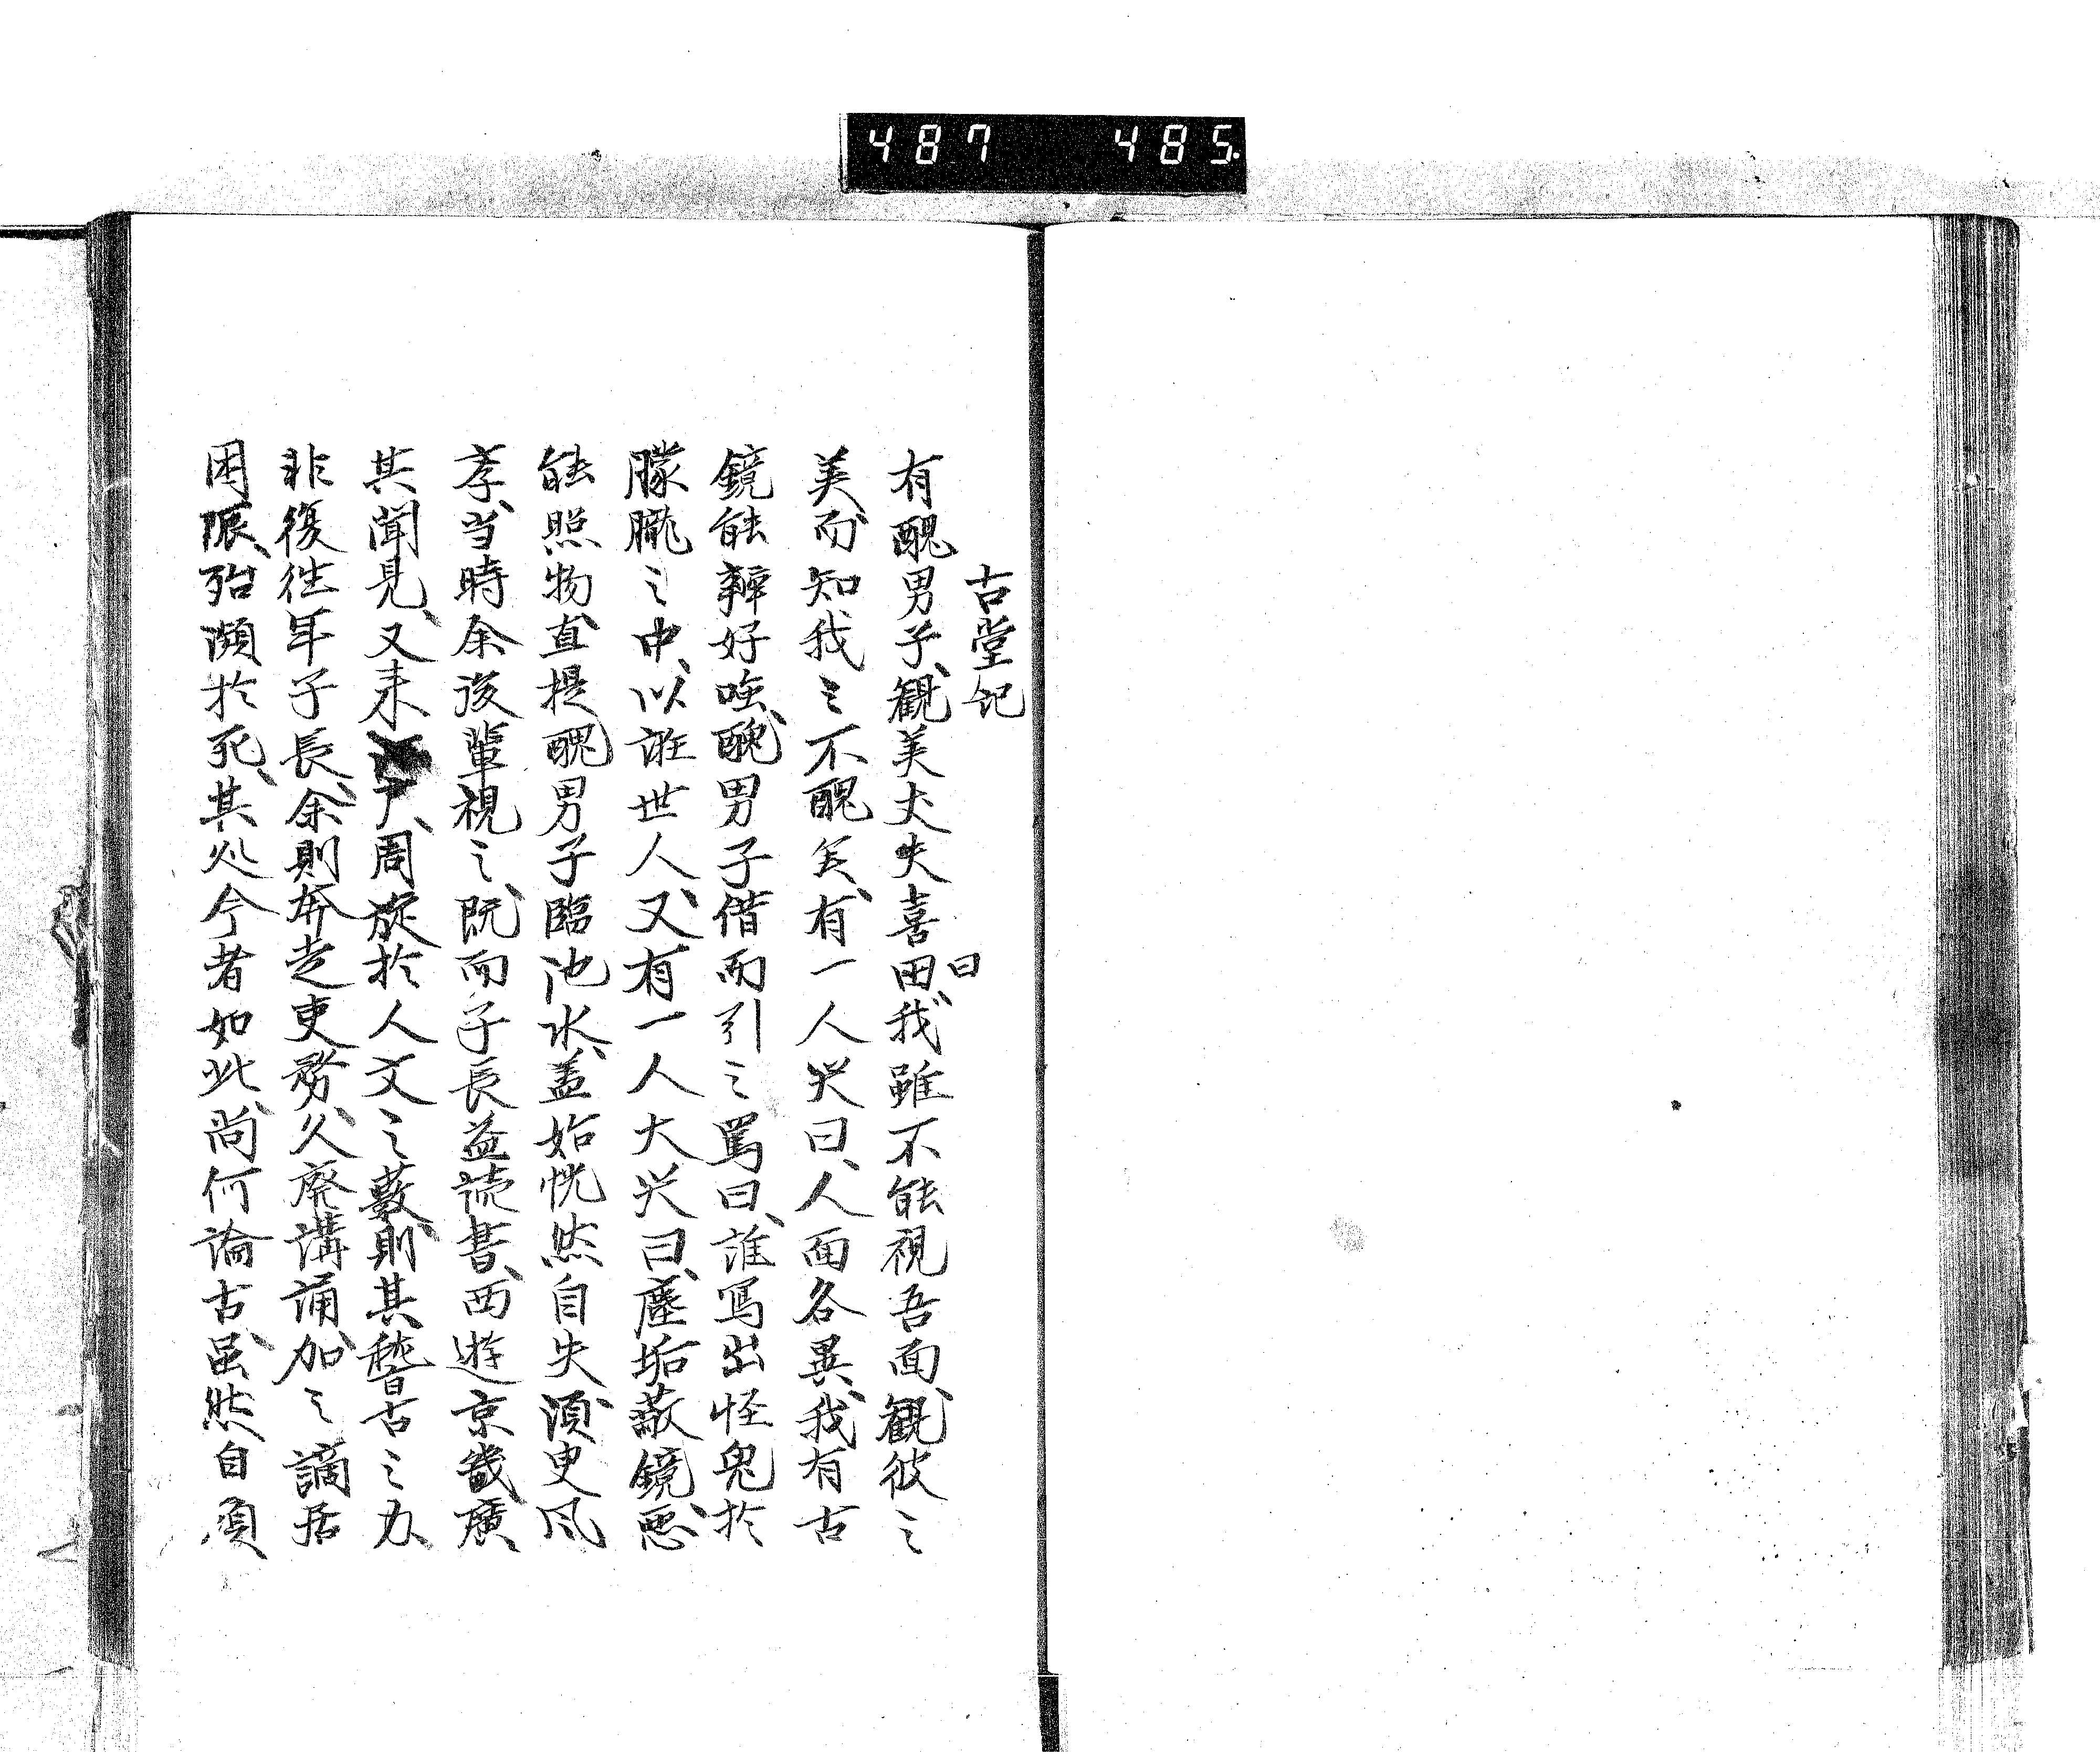 487 485.
古堂記
有醜男子、観美丈夫喜曰、我雖不能視吾面、観彼之
美而知我之不醜矣、有一人咲曰、人面各異、我有古
鏡能辨好嗤、醜男子借而引之罵曰、誰写出怪鬼於
朦朧之中、以誑世人、又有一人大咲曰、塵垢蔽鏡、悪
能照物、直提醜男子臨池水、蓋始恍然自失、須臾风
孝、当時余後輩視之、既而子長益読書、西遊京畿、廣
其聞見、又来戸、周旋於人文之藪、則其稽古之力、
非復往年子長、余則奔走吏務、久廃講誦、加之謫居
困阨、殆瀕於死、其処今者如此、尚何論古、虽然自顧